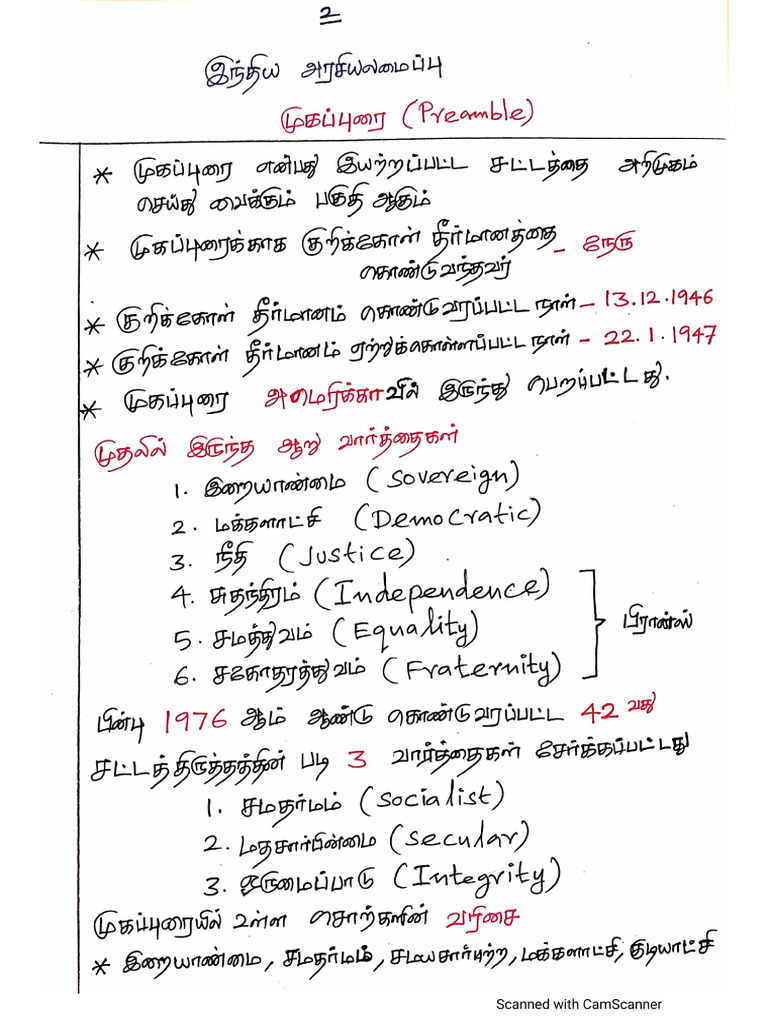 2
இந்திய அரசியலமைப்பு
முகப்புரை (Preamble)
* முகப்புரை என்பது இயற்றப்பட்ட சட்டத்தை அறிமுகம்
செய்து வைக்கும் பகுதி ஆகும்
* முகப்புரைக்காக குறிக்கோள் தீர்மானத்தை – நேரு
கொண்டுவந்தவர்
* குறிக்கோள் தீர்மானம் கொண்டுவரப்பட்ட நாள் – 13.12.1946
* குறிக்கோள் தீர்மானம் ஏற்றுக்கொள்ளப்பட்ட நாள் – 22.1.1947
* முகப்புரை அமெரிக்காவில் இருந்து பெறப்பட்டது.
முதலில் இருந்த ஆறு வார்த்தைகள்
1. இறையாண்மை (Sovereign)
2. மக்களாட்சி (Democratic)
3. நீதி (Justice)
4. சுதந்திரம் (Independence)
5. சமத்துவம் (Equality)
பிரான்ஸ்
6. சகோதரத்துவம் (Fraternity)
பின்பு 1976 ஆம் ஆண்டு கொண்டுவரப்பட்ட 42 வது
சட்டத்திருத்தத்தின் படி 3 வார்த்தைகள் சேர்க்கப்பட்டது
1. சமதர்மம் (Socialist)
2. மதசார்பின்மை (Secular)
3. ஒருமைப்பாடு (Integrity)
முகப்புரையில் உள்ள சொற்களின் வரிசை
* இறையாண்மை, சமதர்மம், சமயசார்பற்ற, மக்களாட்சி, குடியாட்சி
Scanned with CamScanner